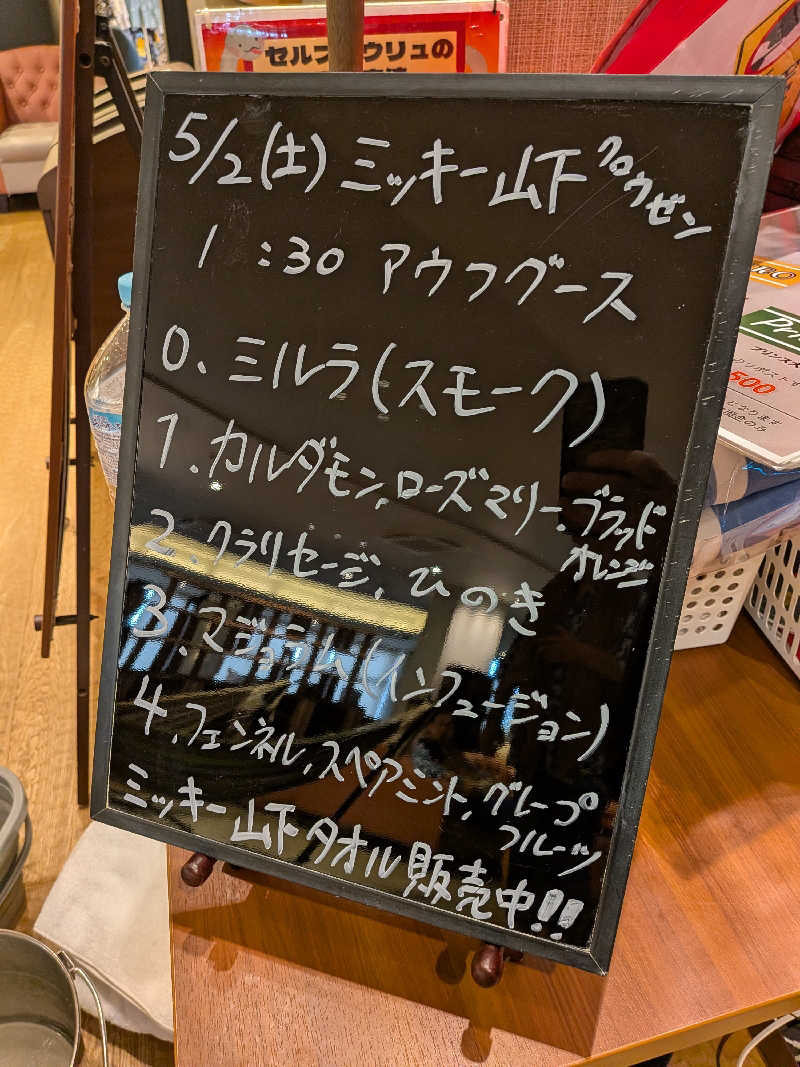 セルフロウリュの
5/2(土) ミッキー山下 プロウゼン
1:30 アウフグース
0、ミルラ(スモーク)
1、カルダモン、ローズマリー、ブラッド
オレンジ
2、クラリセージ、ひのき
3、マジョラム(インフュージョン)
4、フェンネル、スペアミント、グレープ
フルーツ
ミッキー山下タオル販売中!!
500